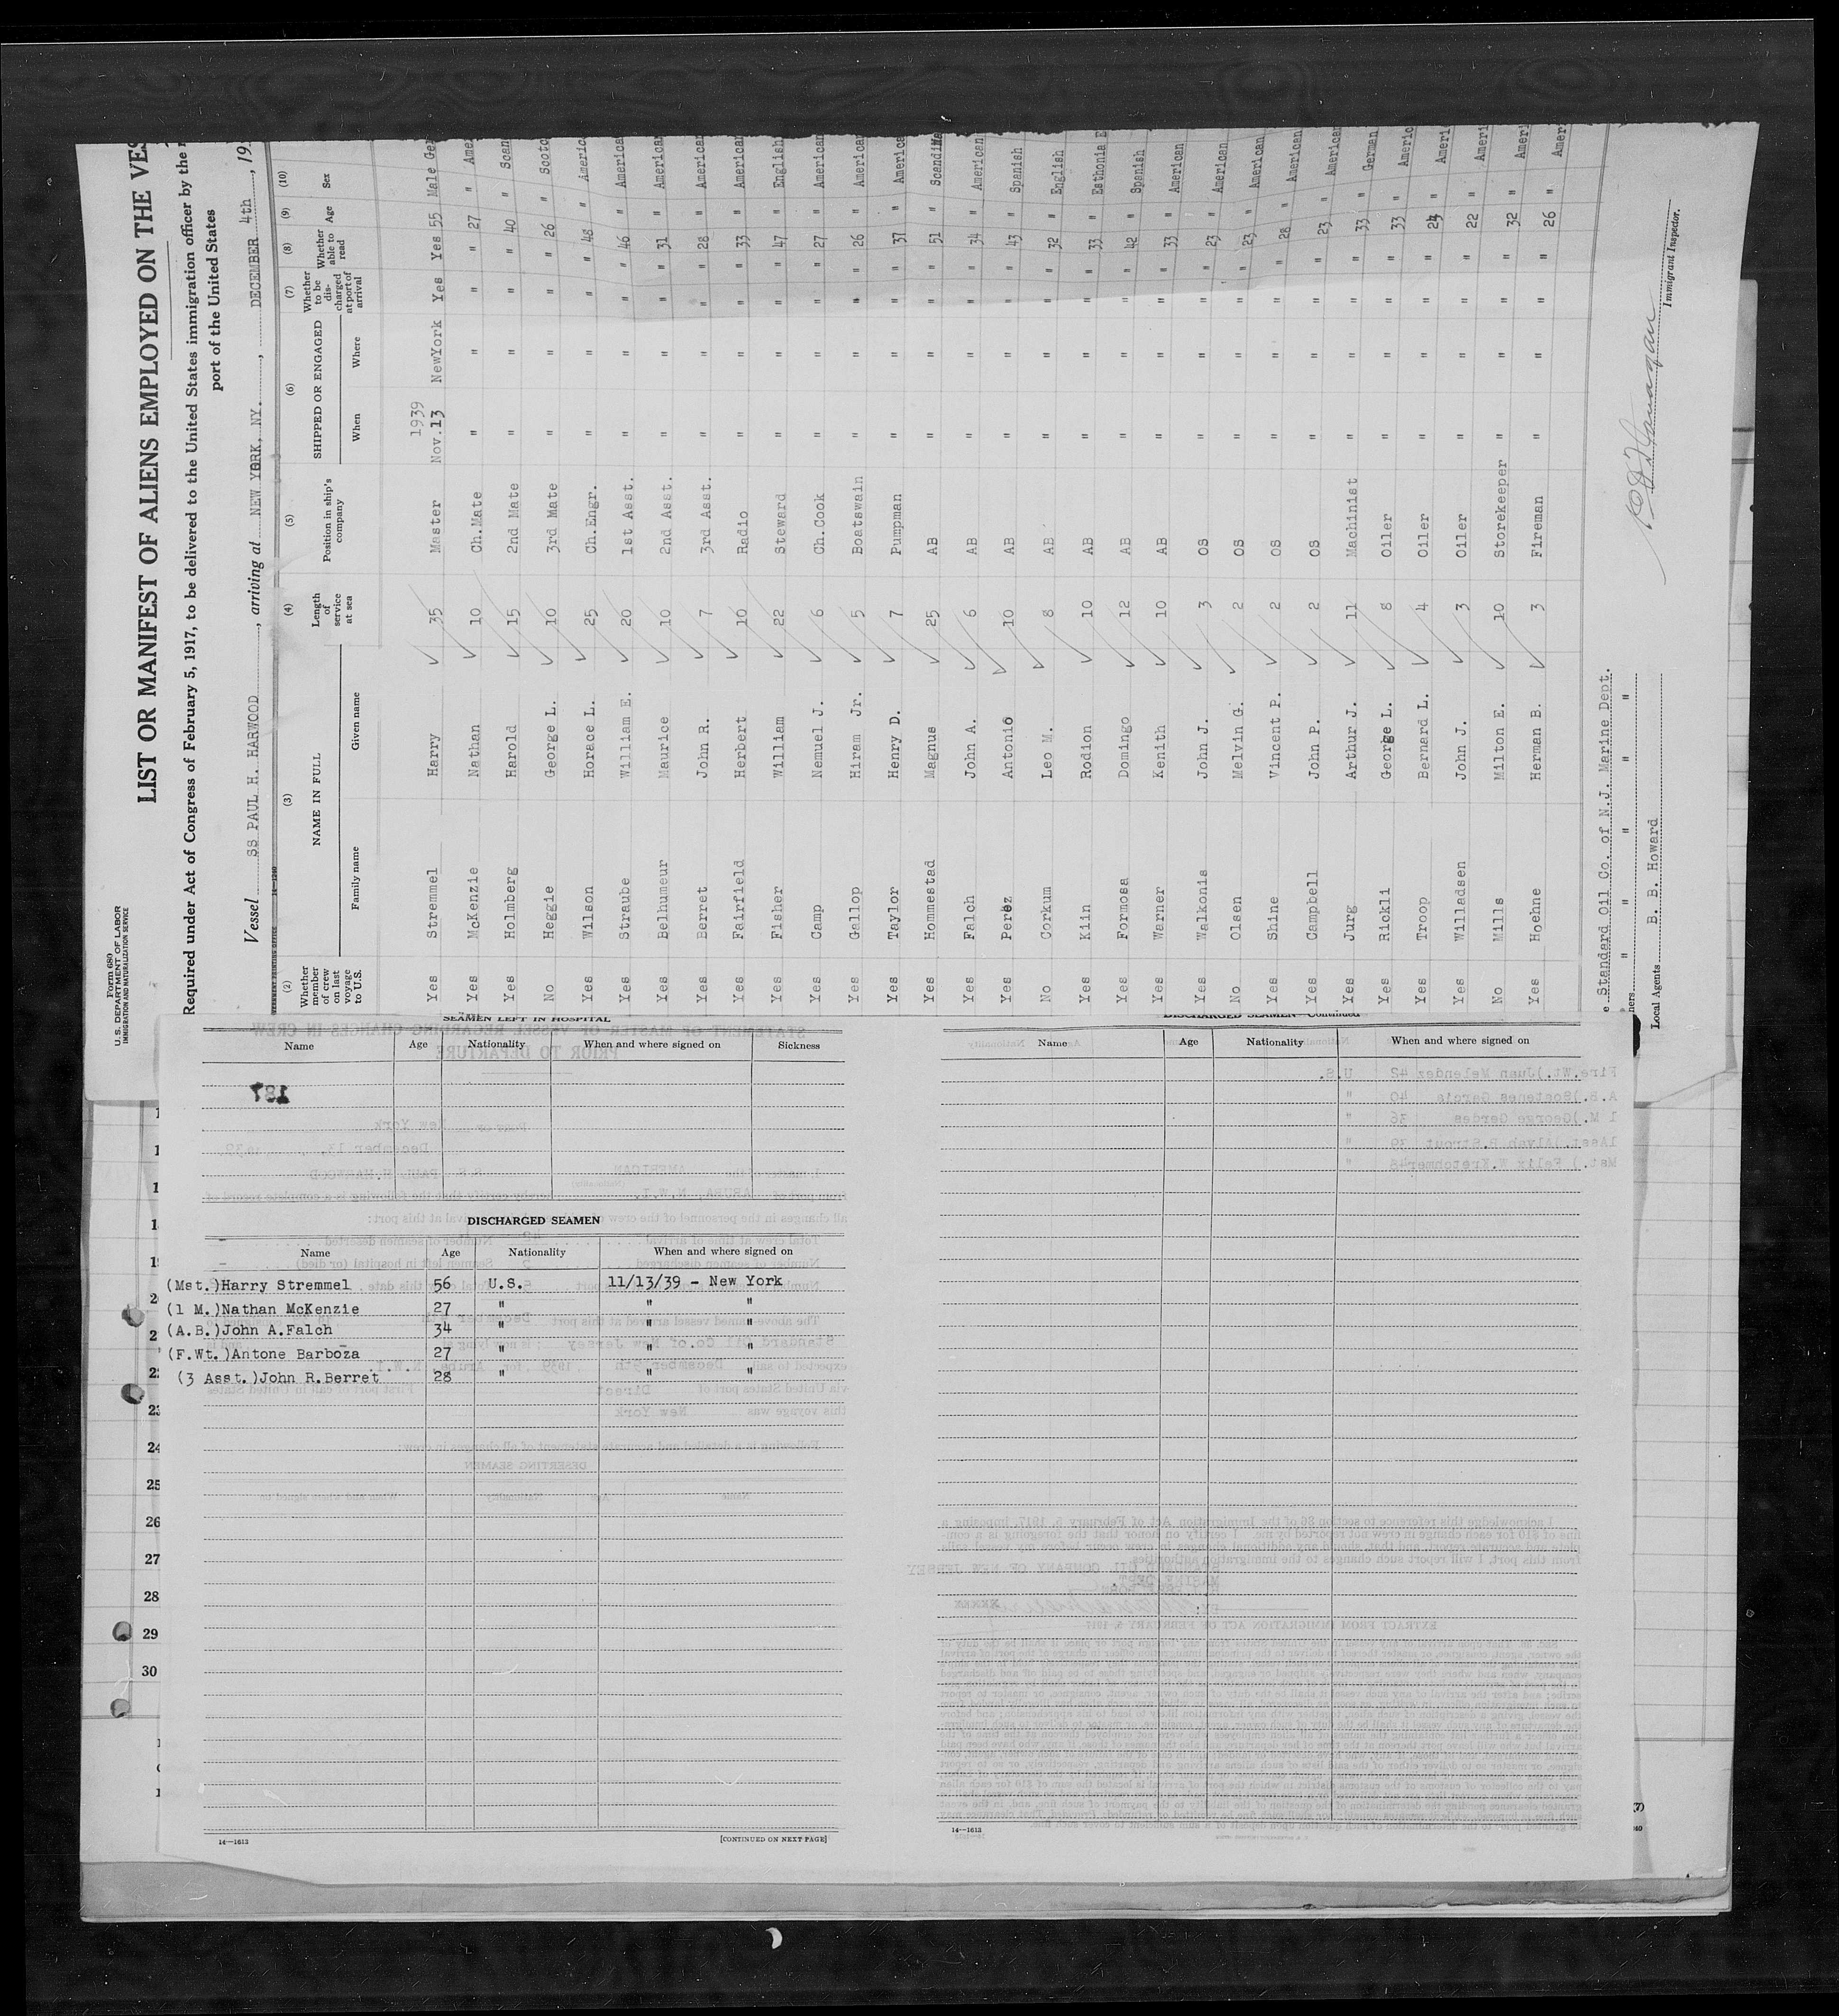 Form 680
U. S. DEPARTMENT OF LABOR
IMMIGRATION AND NATURALIZATION SERVICE
LIST OR MANIFEST OF ALIENS EMPLOYED ON THE VES
Required under Act of Congress of February 5, 1917, to be delivered to the United States immigration officer by the
port of the United States
Vessel SS PAUL H. HARWOOD, arriving at NEW YORK, NY., DECEMBER 4th, 19
(2) (3) (4) (5) (6) (7) (8) (9) (10)
Whether member of crew on last voyage to U.S. NAME IN FULL Length of service at sea Position in ship's company SHIPPED OR ENGAGED Whether to be discharged at port of arrival Whether able to read Age Sex
Family name Given name When Where
1939
Yes Stremmel Harry 35 Master Nov.13 NewYork Yes Yes 55 Male Ger
Yes McKenzie Nathan 10 Ch.Mate " " " " 27 " Amer
Yes Holmberg Harold 15 2nd Mate " " " " 40 " Scan
No Heggie George L. 10 3rd Mate " " " " 26 " Scotc
Yes Wilson Horace L. 25 Ch.Engr. " " " " 48 " Americ
Yes Straube William E. 20 1st Asst. " " " " 46 " America
Yes Belhumeur Maurice 10 2nd Asst. " " " " 31 " American
Yes Berret John R. 7 3rd Asst. " " " " 28 " American
Yes Fairfield Herbert 10 Radio " " " " 33 " American
Yes Fisher William 22 Steward " " " " 47 " English
Yes Camp Nemuel J. 6 Ch.Cook " " " " 27 " American
Yes Gallop Hiram Jr. 5 Boatswain " " " " 26 " American
Yes Taylor Henry D. 7 Pumpman " " " " 37 " America
Yes Hommestad Magnus 25 AB " " " " 51 " Scandina
Yes Falch John A. 6 AB " " " " 34 " American
Yes Perez Antonio 10 AB " " " " 43 " Spanish
No Corkum Leo M. 8 AB " " " " 32 " English
Yes Kiin Rodion 10 AB " " " " 33 " Esthonia
Yes Formosa Domingo 12 AB " " " " 42 " Spanish
Yes Warner Kenith 10 AB " " " " 33 " American
Yes Walkonis John J. 3 OS " " " " 23 " American
No Olsen Melvin G. 2 OS " " " " 23 " American
Yes Shine Vincent P. 2 OS " " " " 28 " American
Yes Campbell John P. 2 OS " " " " 23 " American
Yes Jurg Arthur J. 11 Machinist " " " " 33 " German
Yes Rickli George L. 8 Oiler " " " " 33 " Americ
Yes Troop Bernard L. 4 Oiler " " " " 24 " Ameri
Yes Willadsen John J. 3 Oiler " " " " 22 " Ameri
No Mills Milton E. 10 Storekeeper " " " " 32 " Ameri
Yes Hoehne Herman B. 3 Fireman " " " " 26 " Amer
Standard Oil Co. of N.J. Marine Dept.
ners " " " " "
Local Agents B. B. Howard
Immigrant Inspector.
SEAMEN LEFT IN HOSPITAL
Name Age Nationality When and where signed on Sickness
187
DISCHARGED SEAMEN
Name Age Nationality When and where signed on
(Mst.)Harry Stremmel 56 U.S. 11/13/39 - New York
(1 M.)Nathan McKenzie 27 " " "
(A.B.)John A.Falch 34 " " "
(F.Wt.)Antone Barboza 27 " " "
(3 Asst.)John R.Berret 28 " " "
14—1613 [CONTINUED ON NEXT PAGE]
DISCHARGED SEAMEN—Continued
Name Age Nationality When and where signed on
14—1613
24
25
26
27
28
29
30